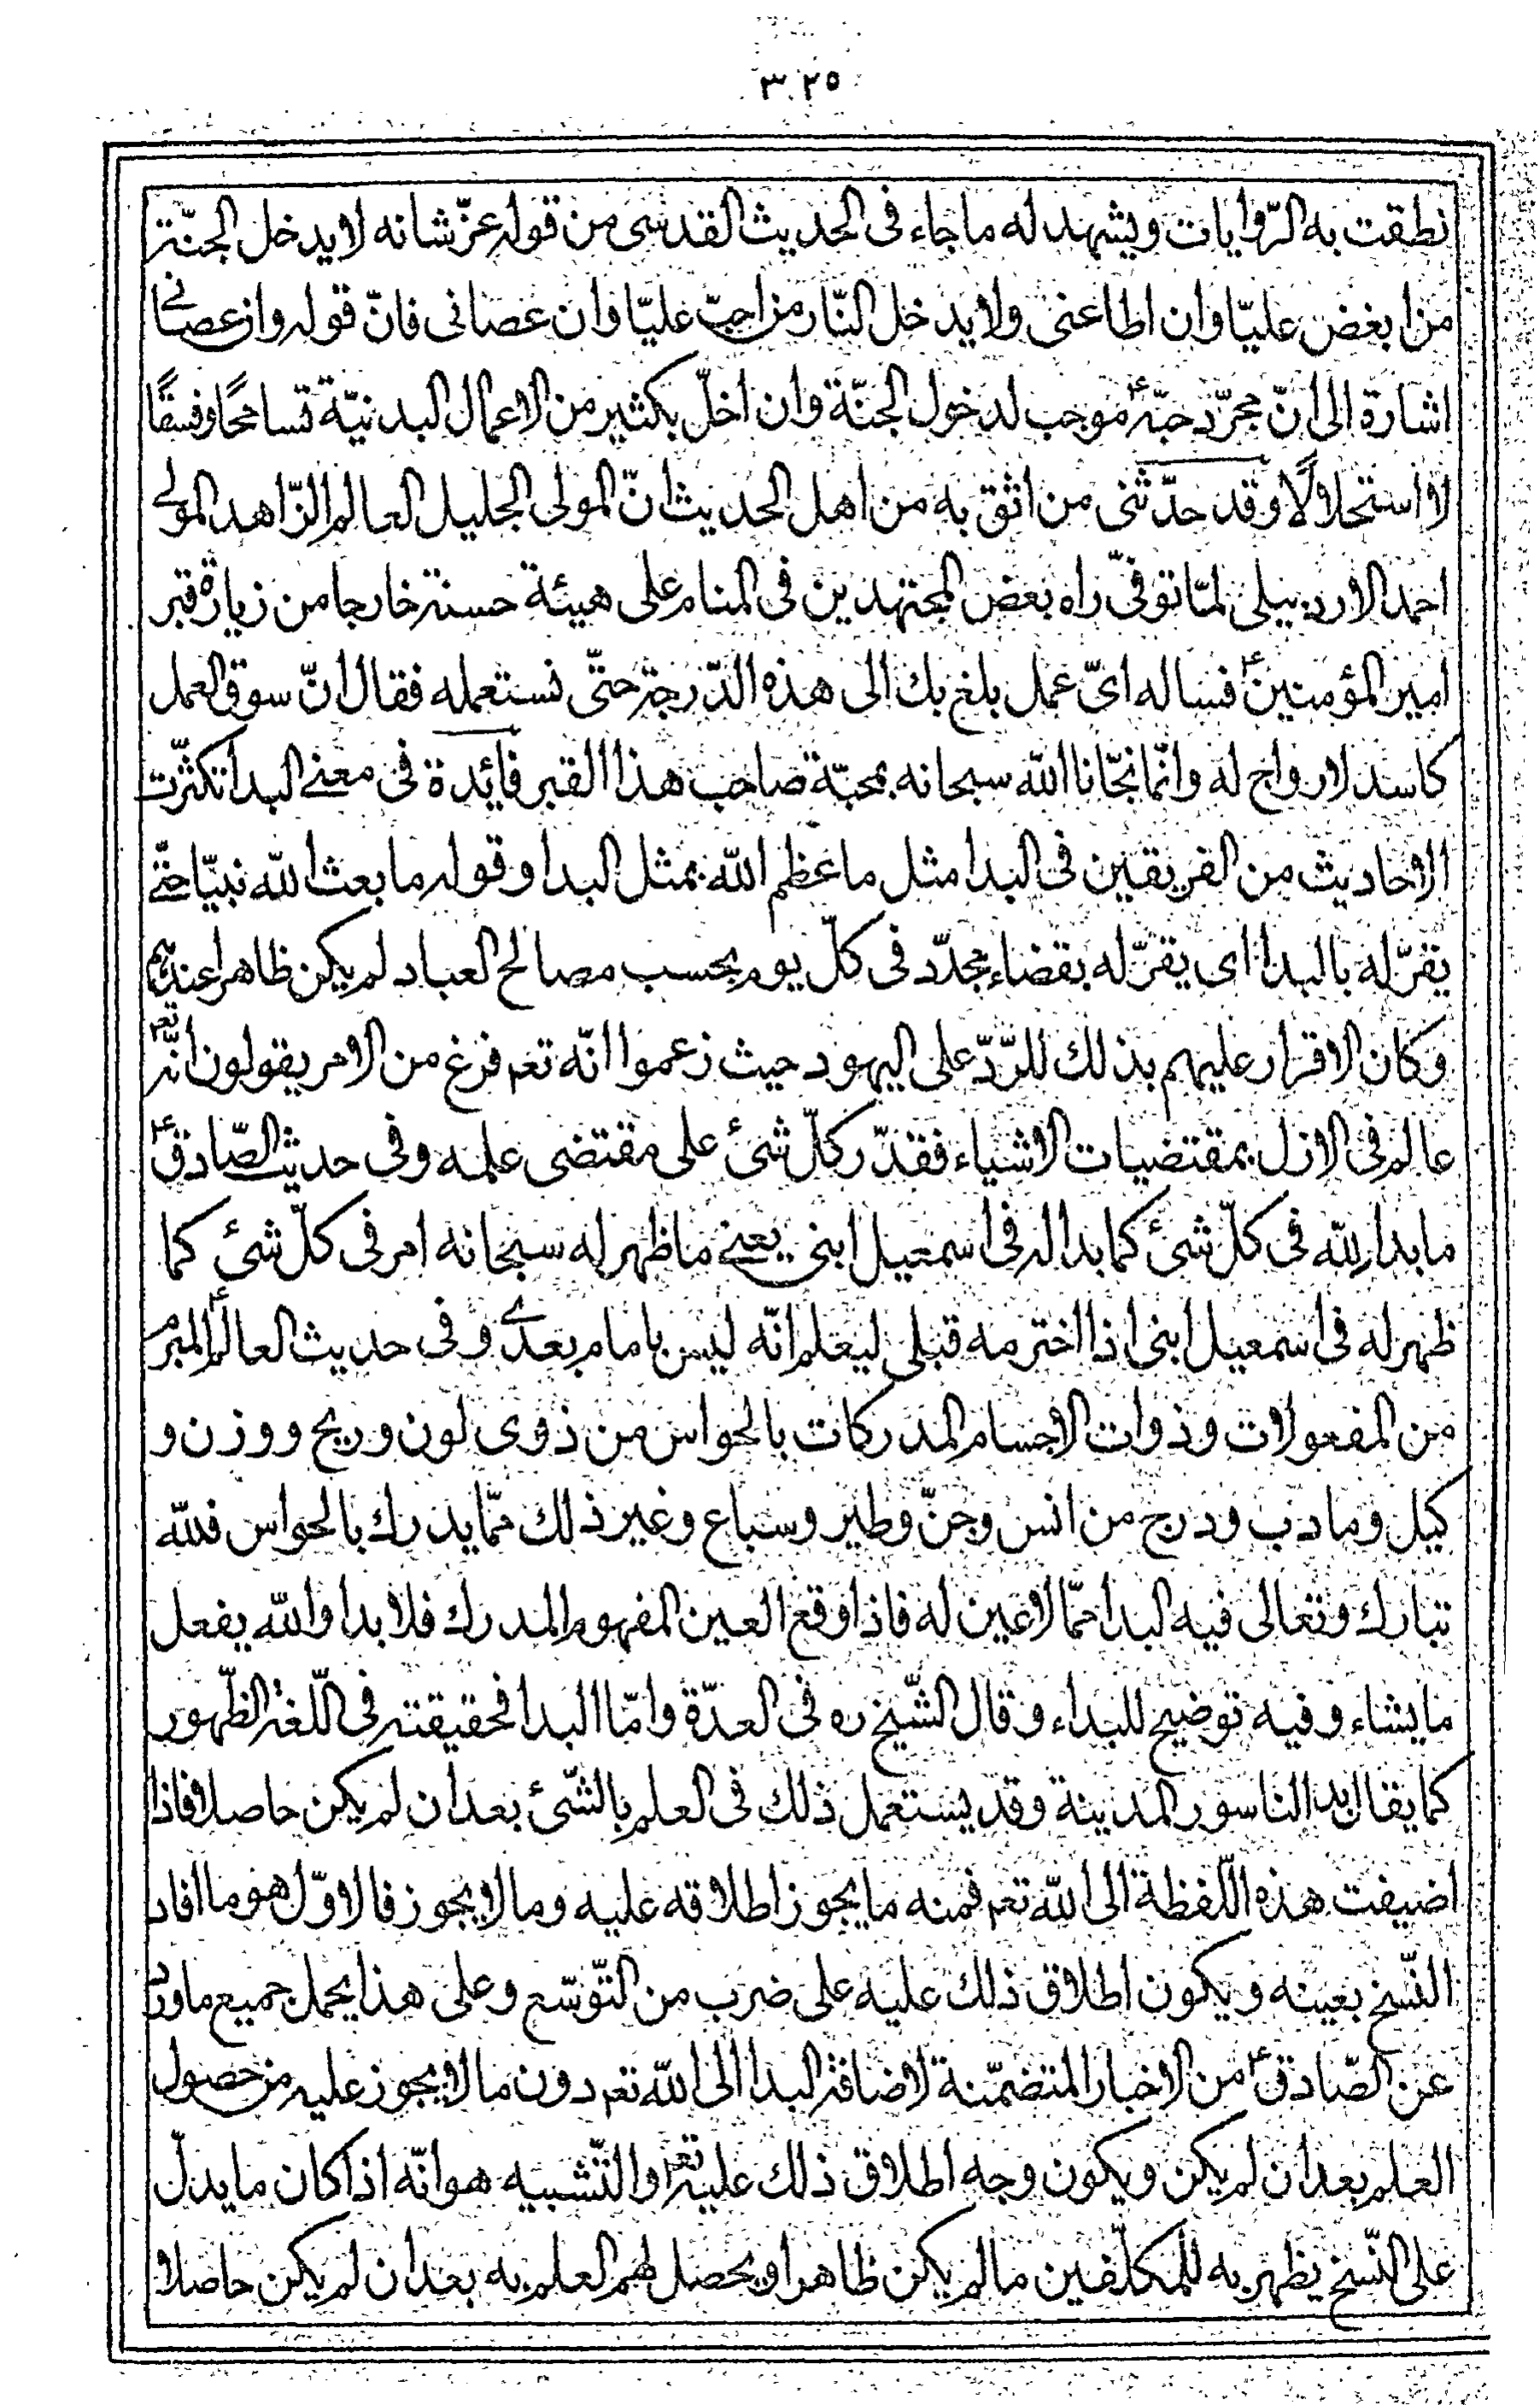 ٣٢٥
نطقت به الرّوايات ويشهد له ما جاء فى الحديث القدسى من قوله عزّ شانه لا يدخل الجنّة
من ابغض عليّا وان اطاعنى ولا يدخل النّار من احبّ عليّا وان عصانى فانّ قوله وان عصانى
اشارة الى انّ مجرّد حبّه ع موجب لدخول الجنّة وان اخلّ بكثير من الاعمال البدنيّة تسامحًا وفسقًا
لا استحلالًا وقد حدّثنى من اثق به من اهل الحديث انّ المولى الجليل العالم الزّاهد المولى
احمد الاردبيلى لمّا توفّى راه بعض المجتهدين فى المنام على هيئة حسنة خارجا من زيارة قبر
امير المؤمنين ع فساله اىّ عمل بلغ بك الى هذه الدّرجة حتّى نستعمله فقال انّ سوق العمل
كاسد لا رواج له وانّما نجّانا اللّه سبحانه بمحبّة صاحب هذا القبر فائدة فى معنى البدا تكثّرت
الاحاديث من الفريقين فى البدا مثل ما عظم اللّه بمثل البدا وقوله ما بعث اللّه نبيّا حتّى
يقرّ له بالبدا اى يقرّ له بقضاء مجدّد فى كلّ يوم بحسب مصالح العباد لم يكن ظاهرا عندهم
وكان الاقرار عليهم بذلك للرّدّ على اليهود حيث زعموا انّه تعم فرغ من الامر يقولون انّه تعم
عالم فى الازل بمقتضيات الاشياء فقدّر كلّ شئ على مقتضى علمه وفى حديث الصّادق ع
ما بدا للّه فى كلّ شئ كما بدا له فى اسمعيل ابنى يعنى ما ظهر له سبحانه امر فى كلّ شئ كما
ظهر له فى اسمعيل ابنى اذا اخترمه قبلى ليعلم انّه ليس بامام بعدى وفى حديث العالم ع المبرم
من المفعولات وذوات الاجسام المدركات بالحواس من ذوى لون وريح ووزن و
كيل وما دب ودرج من انس وجنّ وطير وسباع وغير ذلك ممّا يدرك بالحواس فللّه
تبارك وتعالى فيه البدا ممّا لا عين له فاذا وقع العين المفهوم المدرك فلا بدا واللّه يفعل
ما يشاء وفيه توضيح للبداء وقال الشّيخ ره فى العدّة وامّا البدا فحقيقته فى اللّغة الظّهور
كما يقال بدا لنا سور المدينة وقد يستعمل ذلك فى العلم بالشّئ بعد ان لم يكن حاصلا فاذا
اضيفت هذه اللّفظة الى اللّه تعم فمنه ما يجوز اطلاقه عليه وما لا يجوز فالاوّل هو ما افاد
النّسخ بعينه ويكون اطلاق ذلك عليه على ضرب من التّوسّع وعلى هذا يحمل جميع ما ورد
عن الصّادق ع من الاخبار المتضمّنة لاضافة البدا الى اللّه تعم دون ما لا يجوز عليه من حصول
العلم بعد ان لم يكن ويكون وجه اطلاق ذلك عليه تعم والتّشبيه هو انّه اذا كان ما يدلّ
على النّسخ يظهر به للمكلّفين ما لم يكن ظاهرا ويحصل لهم العلم به بعد ان لم يكن حاصلا